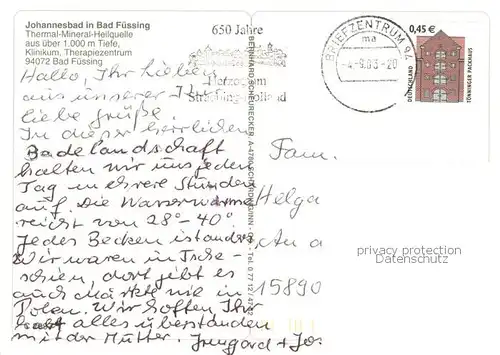 Johannesbad in Bad Füssing
Thermal-Mineral-Heilquelle
aus über 1.000 m Tiefe,
Klinikum, Therapiezentrum
94072 Bad Füssing
650 Jahre
BRIEFZENTRUM 94
ma
-4-9.03-20
0,45 €
DEUTSCHLAND
TÖNNINGER PACKHAUS
Hallo, Ihr Lieben
aus unserer
liebe Grüße.
In dieser herrlichen
Badelandschaft
halten wir uns jeden
Tag mehrere Stunden
auf. Die Wasserwärme
reicht von 28°- 40°.
Jedes Becken ist anders
Wir waren in Tsche-
chien, dort gibt es
auch Märkte wie in
Polen. Wir hoffen Ihr
habt alles überstanden
mit der Mutter. Irmgard + Jo
Fam.
Helga
An a
15890
privacy protection
Datenschutz